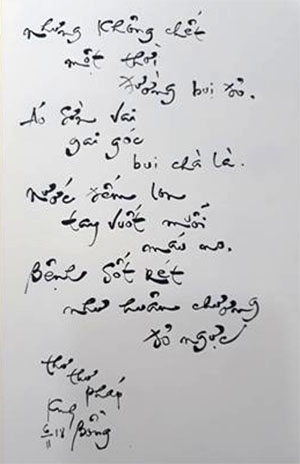 Nhưng không chết
một thời
đường bụi đỏ.
Áo sờn vai
gai góc
bụi chà là.
Nước đếm lon
tay vuốt muỗi
máu no.
Bệnh sốt rét
như huân chương
đỏ ngực
thơ
thư pháp
6 18 Bồng
11